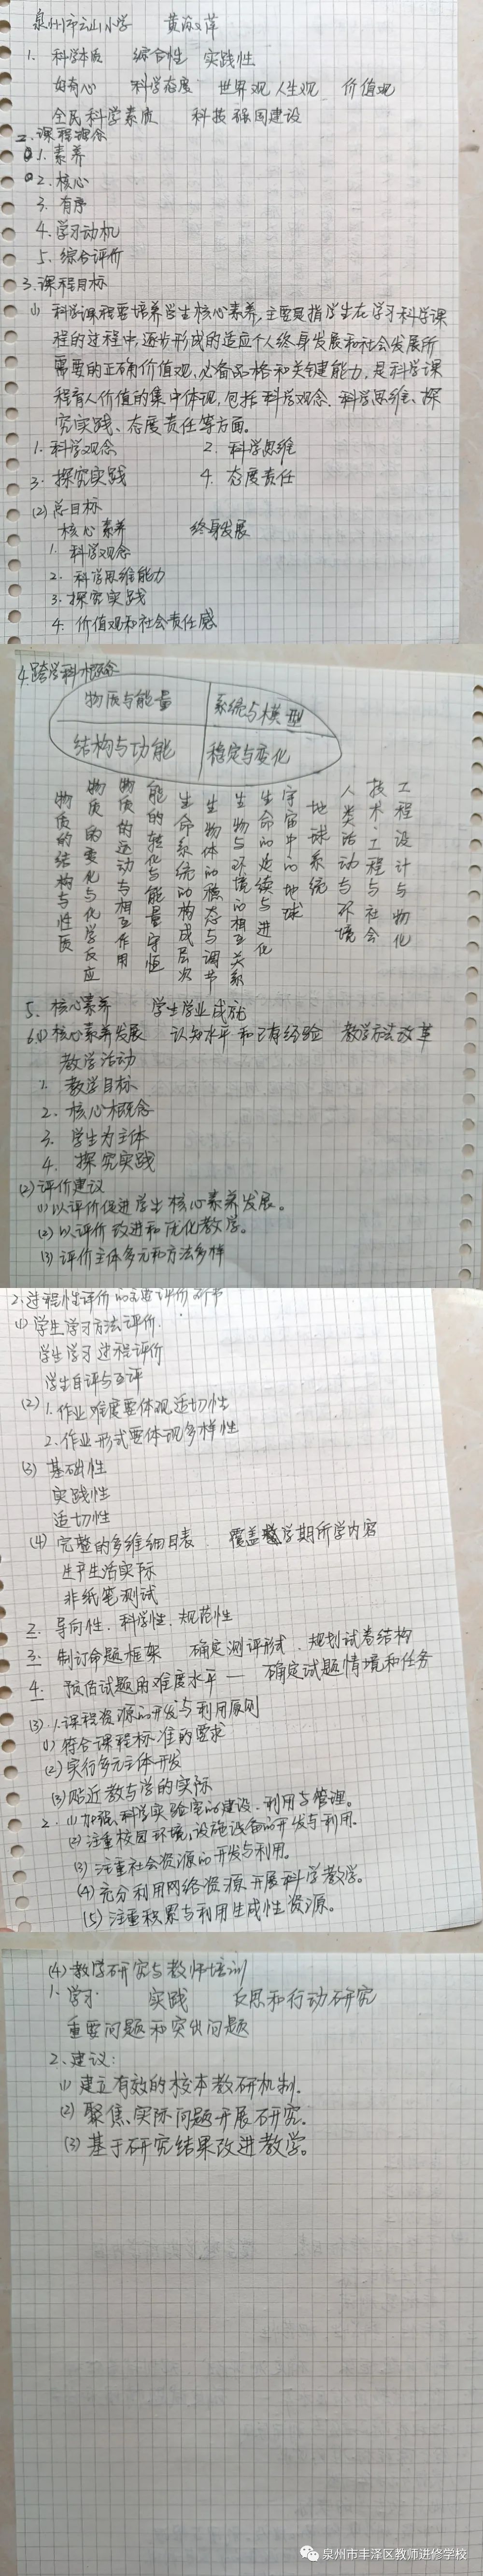 泉州市云山小学 黄 萍
1. 科学本质 综合性 实践性
好奇心 科学态度 世界观 人生观 价值观
全民科学素质 科技强国建设
2. 课程理念
1. 素养
2. 核心
3. 有序
4. 学习动机
5. 综合评价
3. 课程目标
(1) 科学课程要培养学生核心素养,主要是指学生在学习科学课
程的过程中,逐步形成的适应个人终身发展和社会发展所
需要的正确价值观,必备品格和关键能力,是科学课
程育人价值的集中体现,包括科学观念、科学思维、探
究实践、态度责任等方面。
1. 科学观念 2. 科学思维
3. 探究实践 4. 态度责任
(2) 总目标
核心素养 终身发展
1. 科学观念
2. 科学思维能力
3. 探究实践
4. 价值观和社会责任感
4. 跨学科概念
物质与能量 系统与模型
结构与功能 稳定与变化
物质的结构与性质
物质的变化与化学反应
物质的运动与相互作用
能的转化与能量守恒
生命系统的构成层次
生物体的稳态与调节
生物与环境的相互关系
生命的延续与进化
宇宙中的地球
地球系统
人类活动与环境
技术、工程与社会
工程设计与物化
5. 核心素养 学生学业成就
6.(1) 核心素养发展 认知水平和已有经验 教学方法改革
教学活动
1. 教学目标
2. 核心概念
3. 学生为主体
4. 探究实践
(2) 评价建议
(1) 以评价促进学生核心素养发展。
(2) 以评价改进和优化教学。
(3) 评价主体多元和方法多样
2. 过程性评价的主要评价环节
(1) 学生学习方法评价.
学生学习过程评价
学生自评与互评
(2) 1. 作业难度要体现适切性
2. 作业形式要体现多样性
(3) 基础性
实践性
适切性
(4) 完整的多维细目表 覆盖整学期所学内容
生产生活实际
非纸笔测试
2. 导向性、科学性、规范性
3. 制订命题框架 确定测评形式、规划试卷结构
4. 预估试题的难度水平 — 确定试题情境和任务
(3). 1. 课程资源的开发与利用原则
(1) 符合课程标准的要求
(2) 实行多元主体开发
(3) 贴近教与学的实际
2. (1) 加强科学实验室的建设、利用与管理。
(2) 注重校园环境、设施设备的开发与利用.
(3) 注重社会资源的开发与利用。
(4) 充分利用网络资源开展科学教学。
(5) 注重积累与利用生成性资源。
(4) 教学研究与教师培训
1. 学习 实践 反思和行动研究
重要问题和突出问题
2. 建议:
(1) 建立有效的校本教研机制.
(2) 聚焦实际问题开展研究.
(3) 基于研究结果改进教学。
泉州市丰泽区教师进修学校